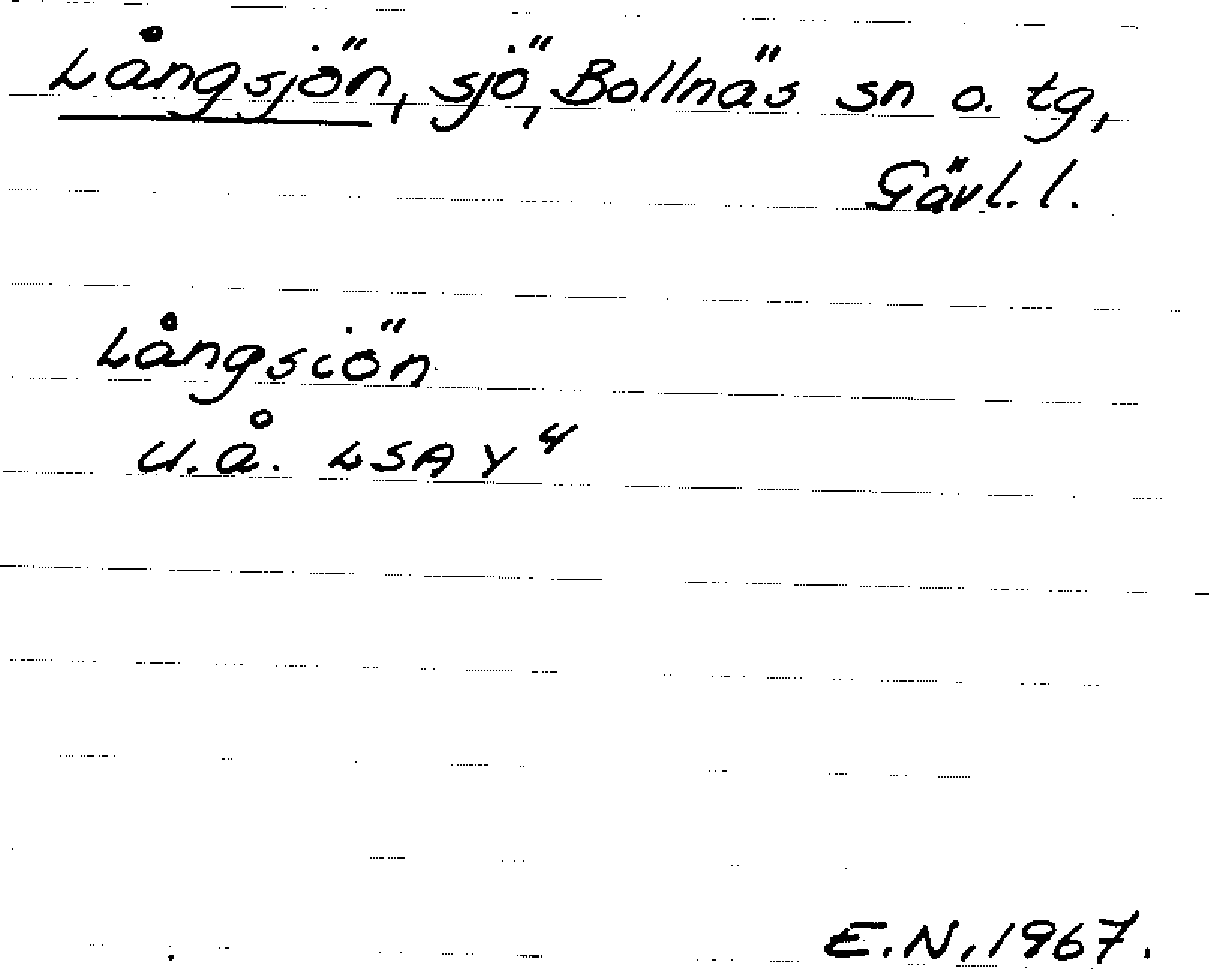 Långsjön, sjö, Bollnäs sn o. tg,
Gävl. l.
Långsiön
u.å. LSA Y⁴
E.N. 1967.